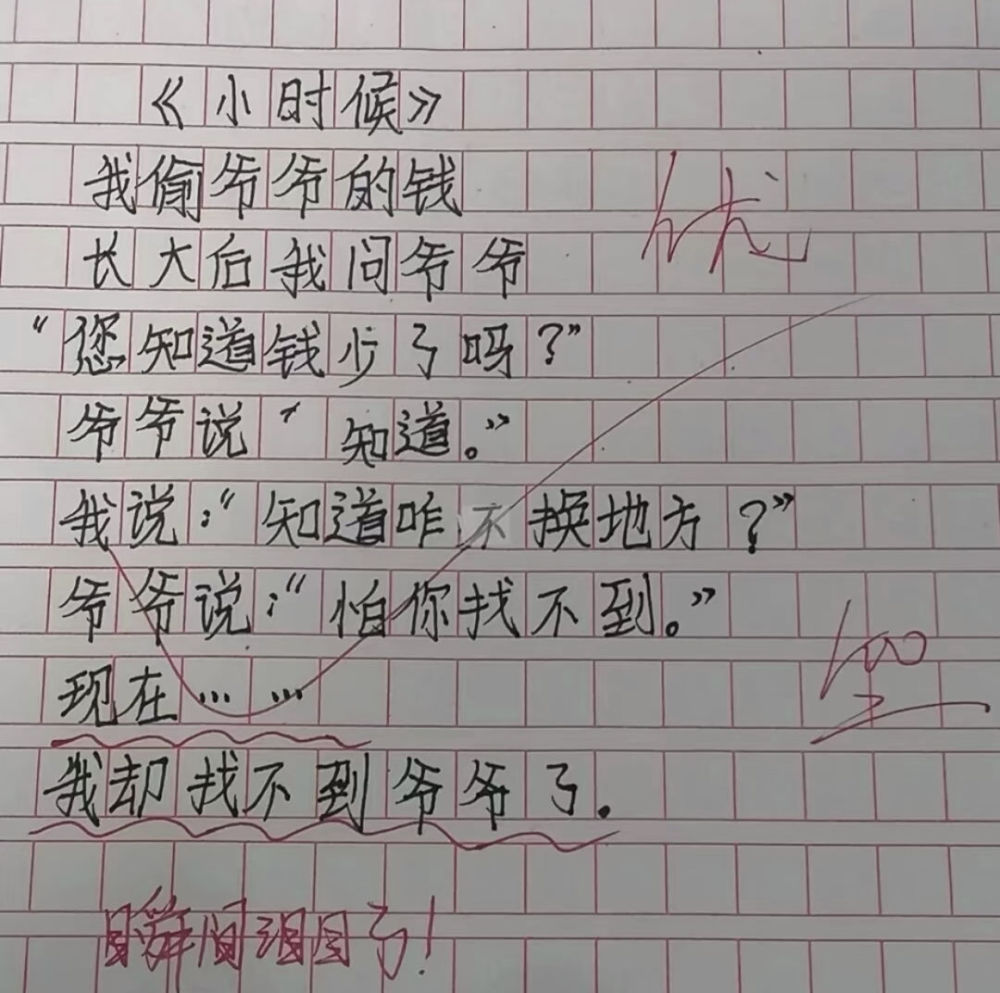 《小时候》
我偷爷爷的钱
优
长大后我问爷爷
“您知道钱少了吗？”
爷爷说“知道。”
我说：“知道咋不换地方？”
爷爷说：“怕你找不到。”
100
现在……
我却找不到爷爷了.
瞬间泪目了！